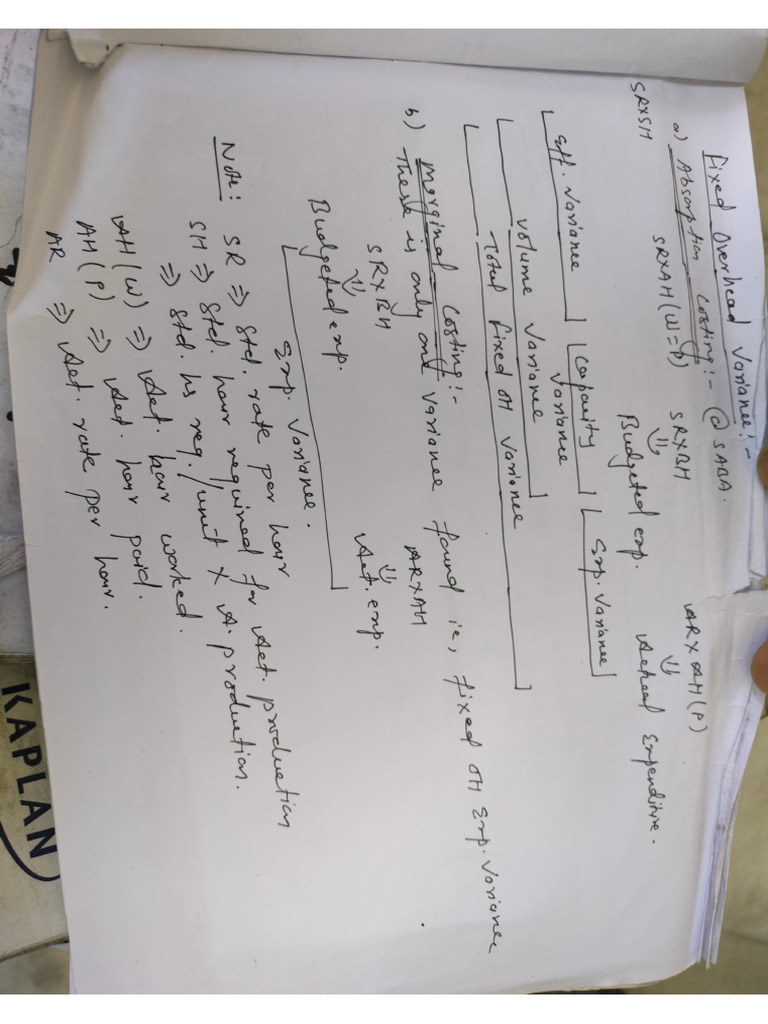 Fixed Overhead Variance:-
a) Absorption costing:- @ SABA.
SR×SH SR×AH(W=P) SR×BH AR×AH(P)
⇓ ⇓
Budgeted exp. Actual Expenditure.
Eff. Variance Capacity Variance Exp. Variance
Volume Variance
Total fixed OH Variance
b) Marginal Costing:-
There is only one variance found i.e, fixed OH Exp. Variance
SR×BH AR×AH
⇓ ⇓
Budgeted exp. Act. exp.
Exp. Variance.
Note: SR ⇒ Std. rate per hour
SH ⇒ Std. hour required for Act. production
⇒ Std. hs req./unit × A. production.
AH(W) ⇒ Act. hour worked.
AH(P) ⇒ Act. hour paid.
AR ⇒ Act. rate per hour.
KAPLAN